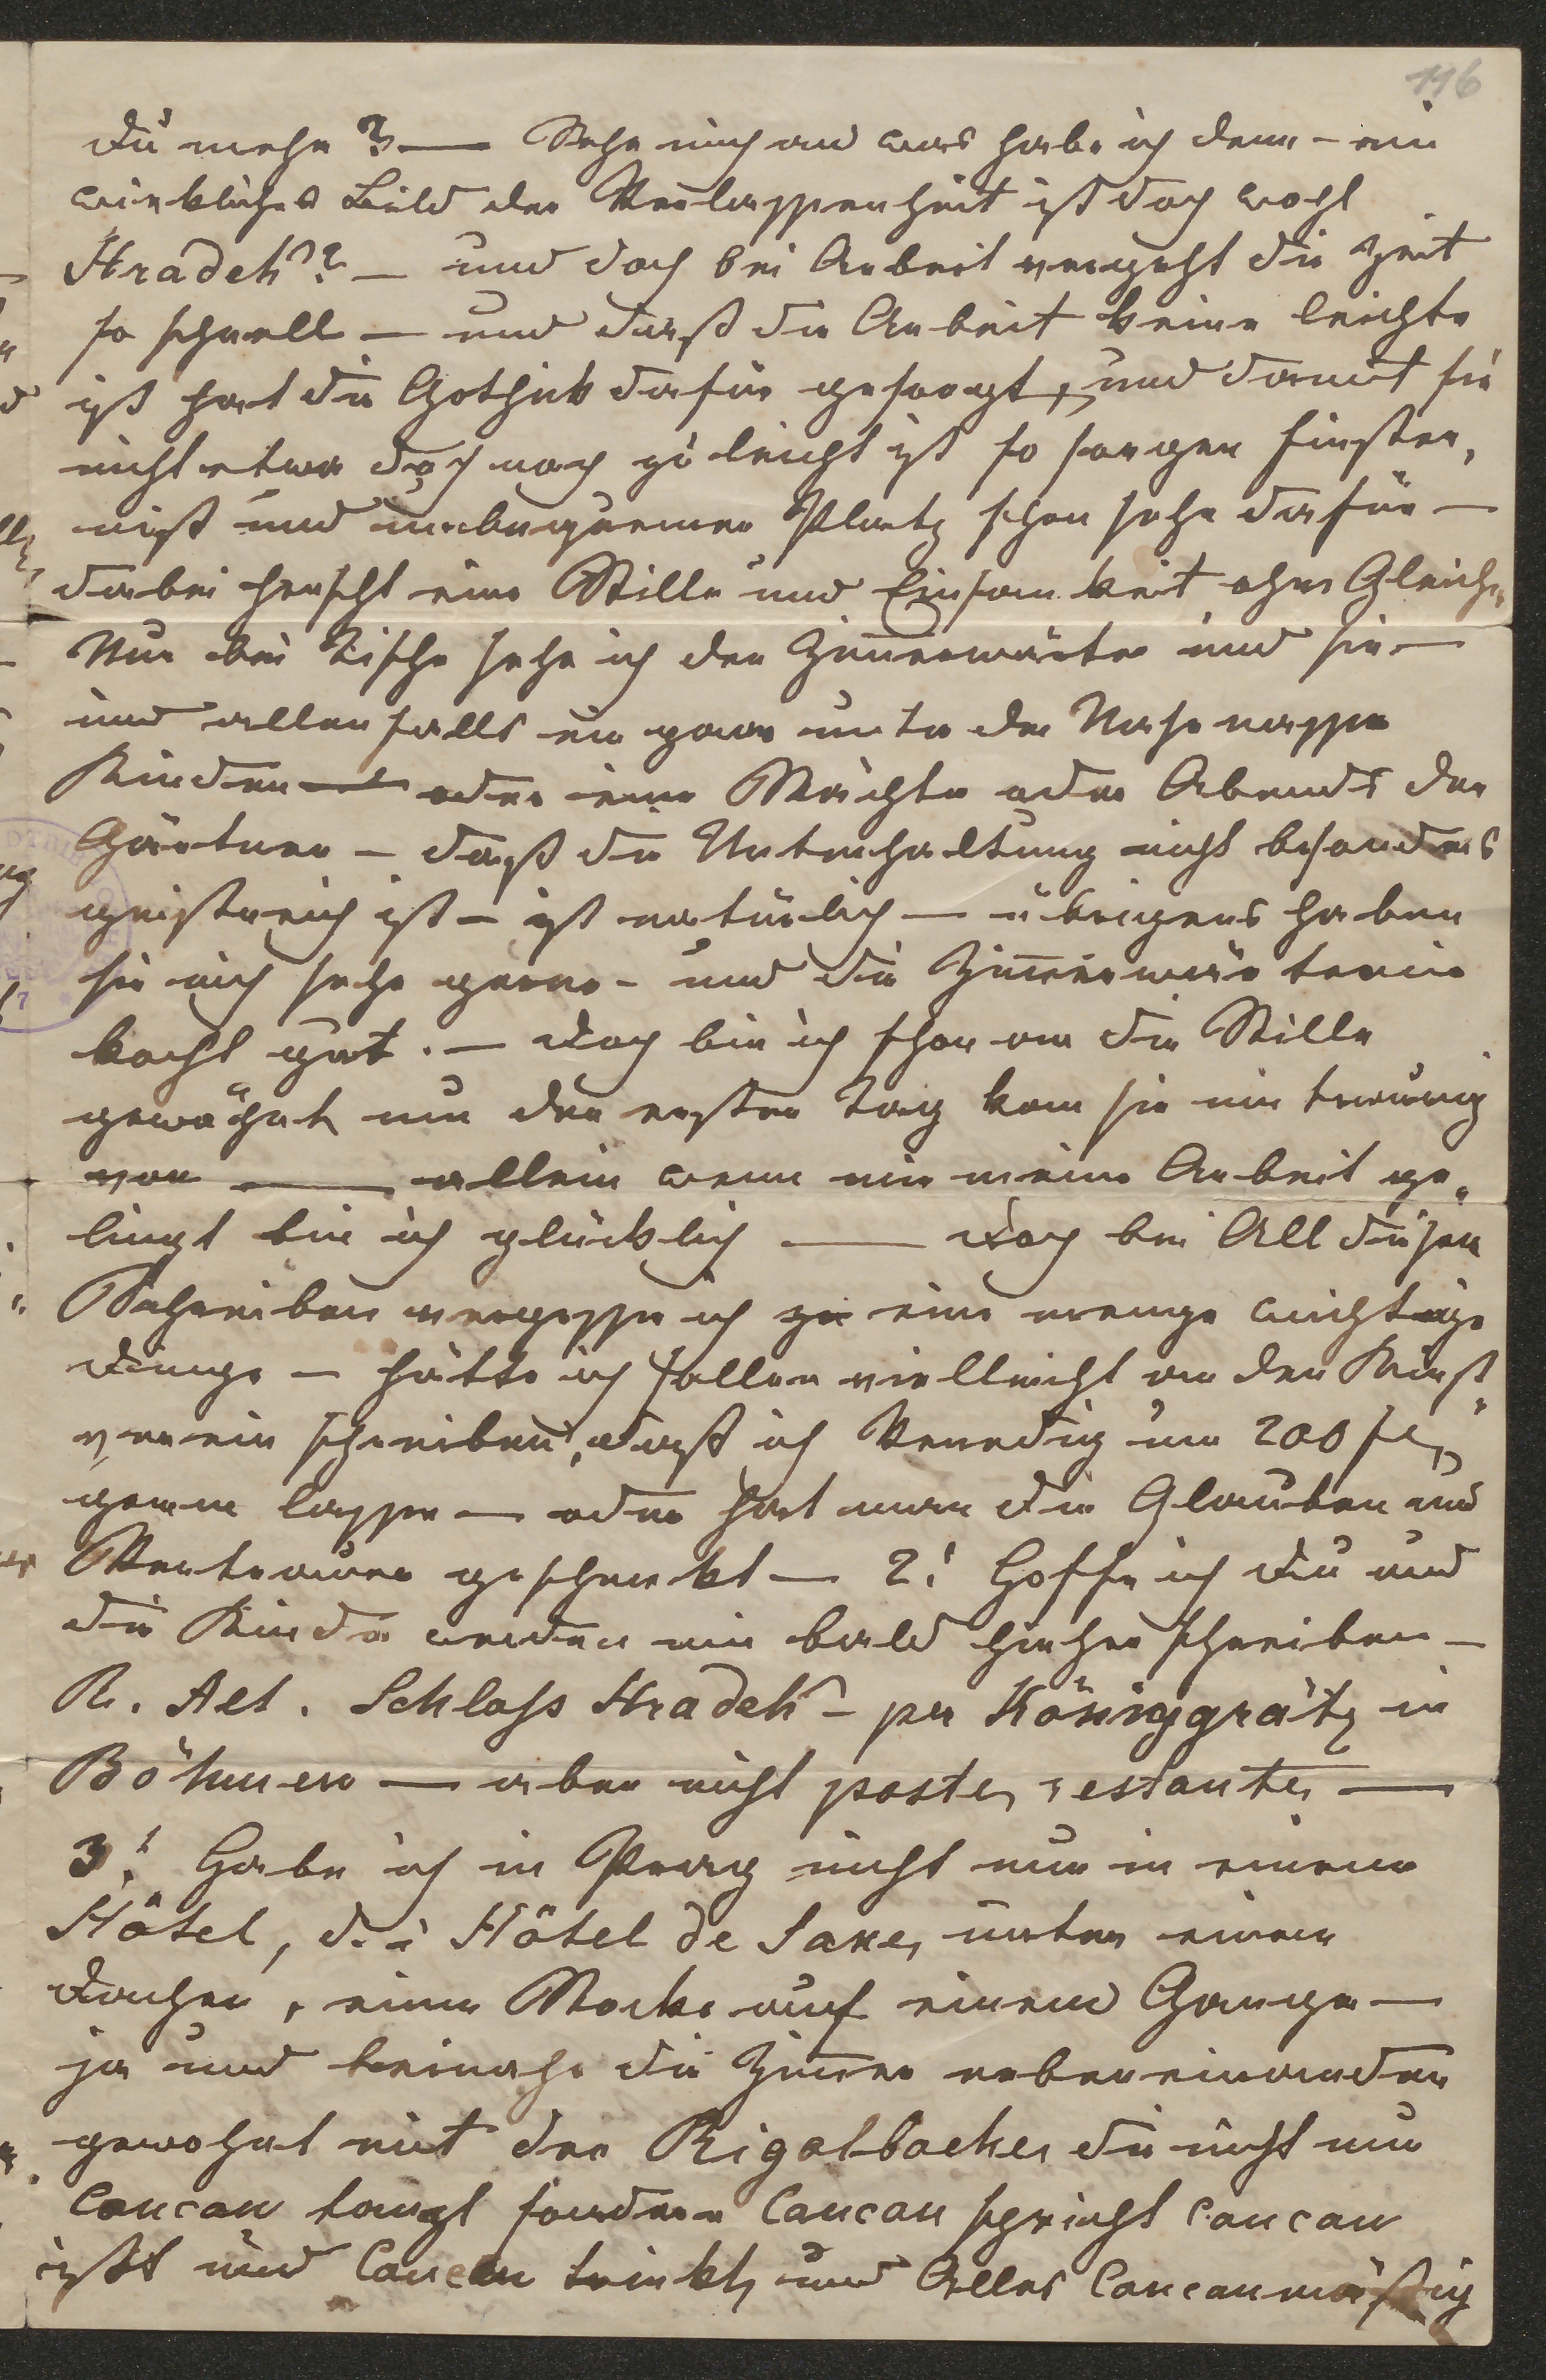 116
du mehr? — Sehe mich an was habe ich denn – ein
wirkliches Bild der Verlassenheit ist doch wohl
Hradek? — und doch bei Arbeit vergeht die Zeit
so schnell — und daß die Arbeit keine leichte
ist hat die Gothik dafür gesorgt, und damit sie
nicht etwa doch noch zu leicht ist so sorgen Finster„
niß und unbequemer Platz schon sehr dafür —
dabei herscht eine Stille und Einsamkeit ohne Gleichen
Nur bei Tische sehe ich den Zim̅erwärter und sie —
und allenfalls ein paar unter der Nase nasse
Kinder — oder eine Wächter oder Abends der
Gärtner – daß die Unterhaltung nicht besonders
geistreich ist – ist natürlich — übrigens haben
sie mich sehr gerne – und die Zim̅erwärterin
kocht gut. — Doch bin ich schon an die Stille
gewöhnt nur den ersten Tag kam sie mir traurig
vor — allein wenn mir meine Arbeit ge„
lingt bin ich glücklich — Doch bei All diesen
Schreiben vergesse ich eine menge wichtige
Dinge — hätte ich sollen vielleicht an den Kunst„
verein schreiben, daß ich Venedig um 200 fl
gerne lasse — oder hat man dir Glauben und
Vertrauen geschenkt — 2! Hoffe ich Du und
die Kinder werden mir bald hieher schreiben —
R. Alt. Schloss Hradek – per Königgrätz in
Böhmen — aber nicht poste restante —
3! Habe ich in Prag nicht nur in einem
Hôtel, d. i Hôtel de Saxe, unter einem
Dache, einem Stocke auf einem Gange —
ja und beinahe die Zim̅er nebeneinander
gewohnt mit der Rigolboche die nicht nur
Cancan tanzt sondern Cancan spricht Cancan
ißt und Cancan trinkt, und Alles Cancanmäßig